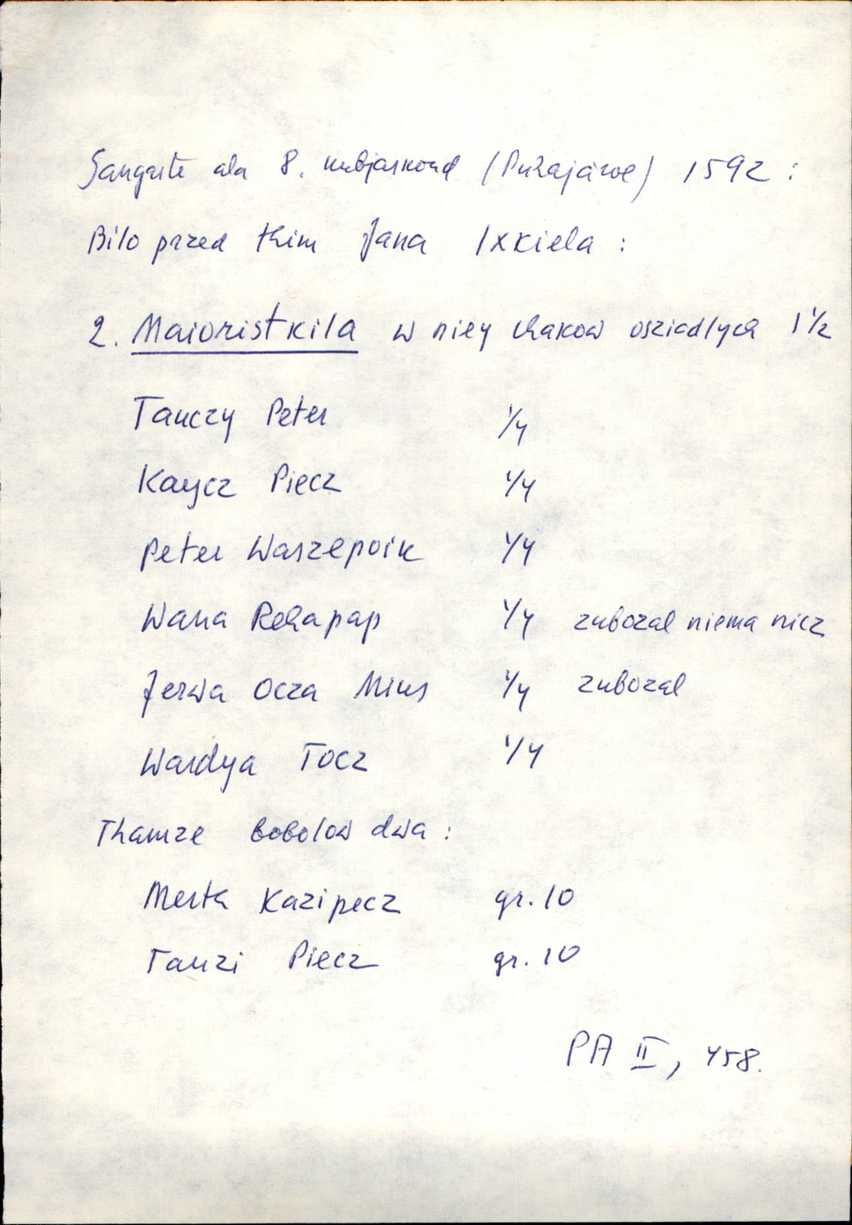 Sangaste ala 8. kubjaskond (Pühajärve) 1592 :
Bilo przed thim Jana Ixkiela :
2. Maioristkila w niey hakow osziadlych 1 1/2
Tauczy Peter 1/4
Kaycz Piecz 1/4
Peter Waszepoik 1/4
Wana Rehapap 1/4 zubozal niema nicz
Jerwa Ocza Mius 1/4 zubozal
Wardya Tocz 1/4
Thamze bobolow dwa :
Mertk Kazipecz gr. 10
Tauzi Piecz gr. 10
PA II, 458.